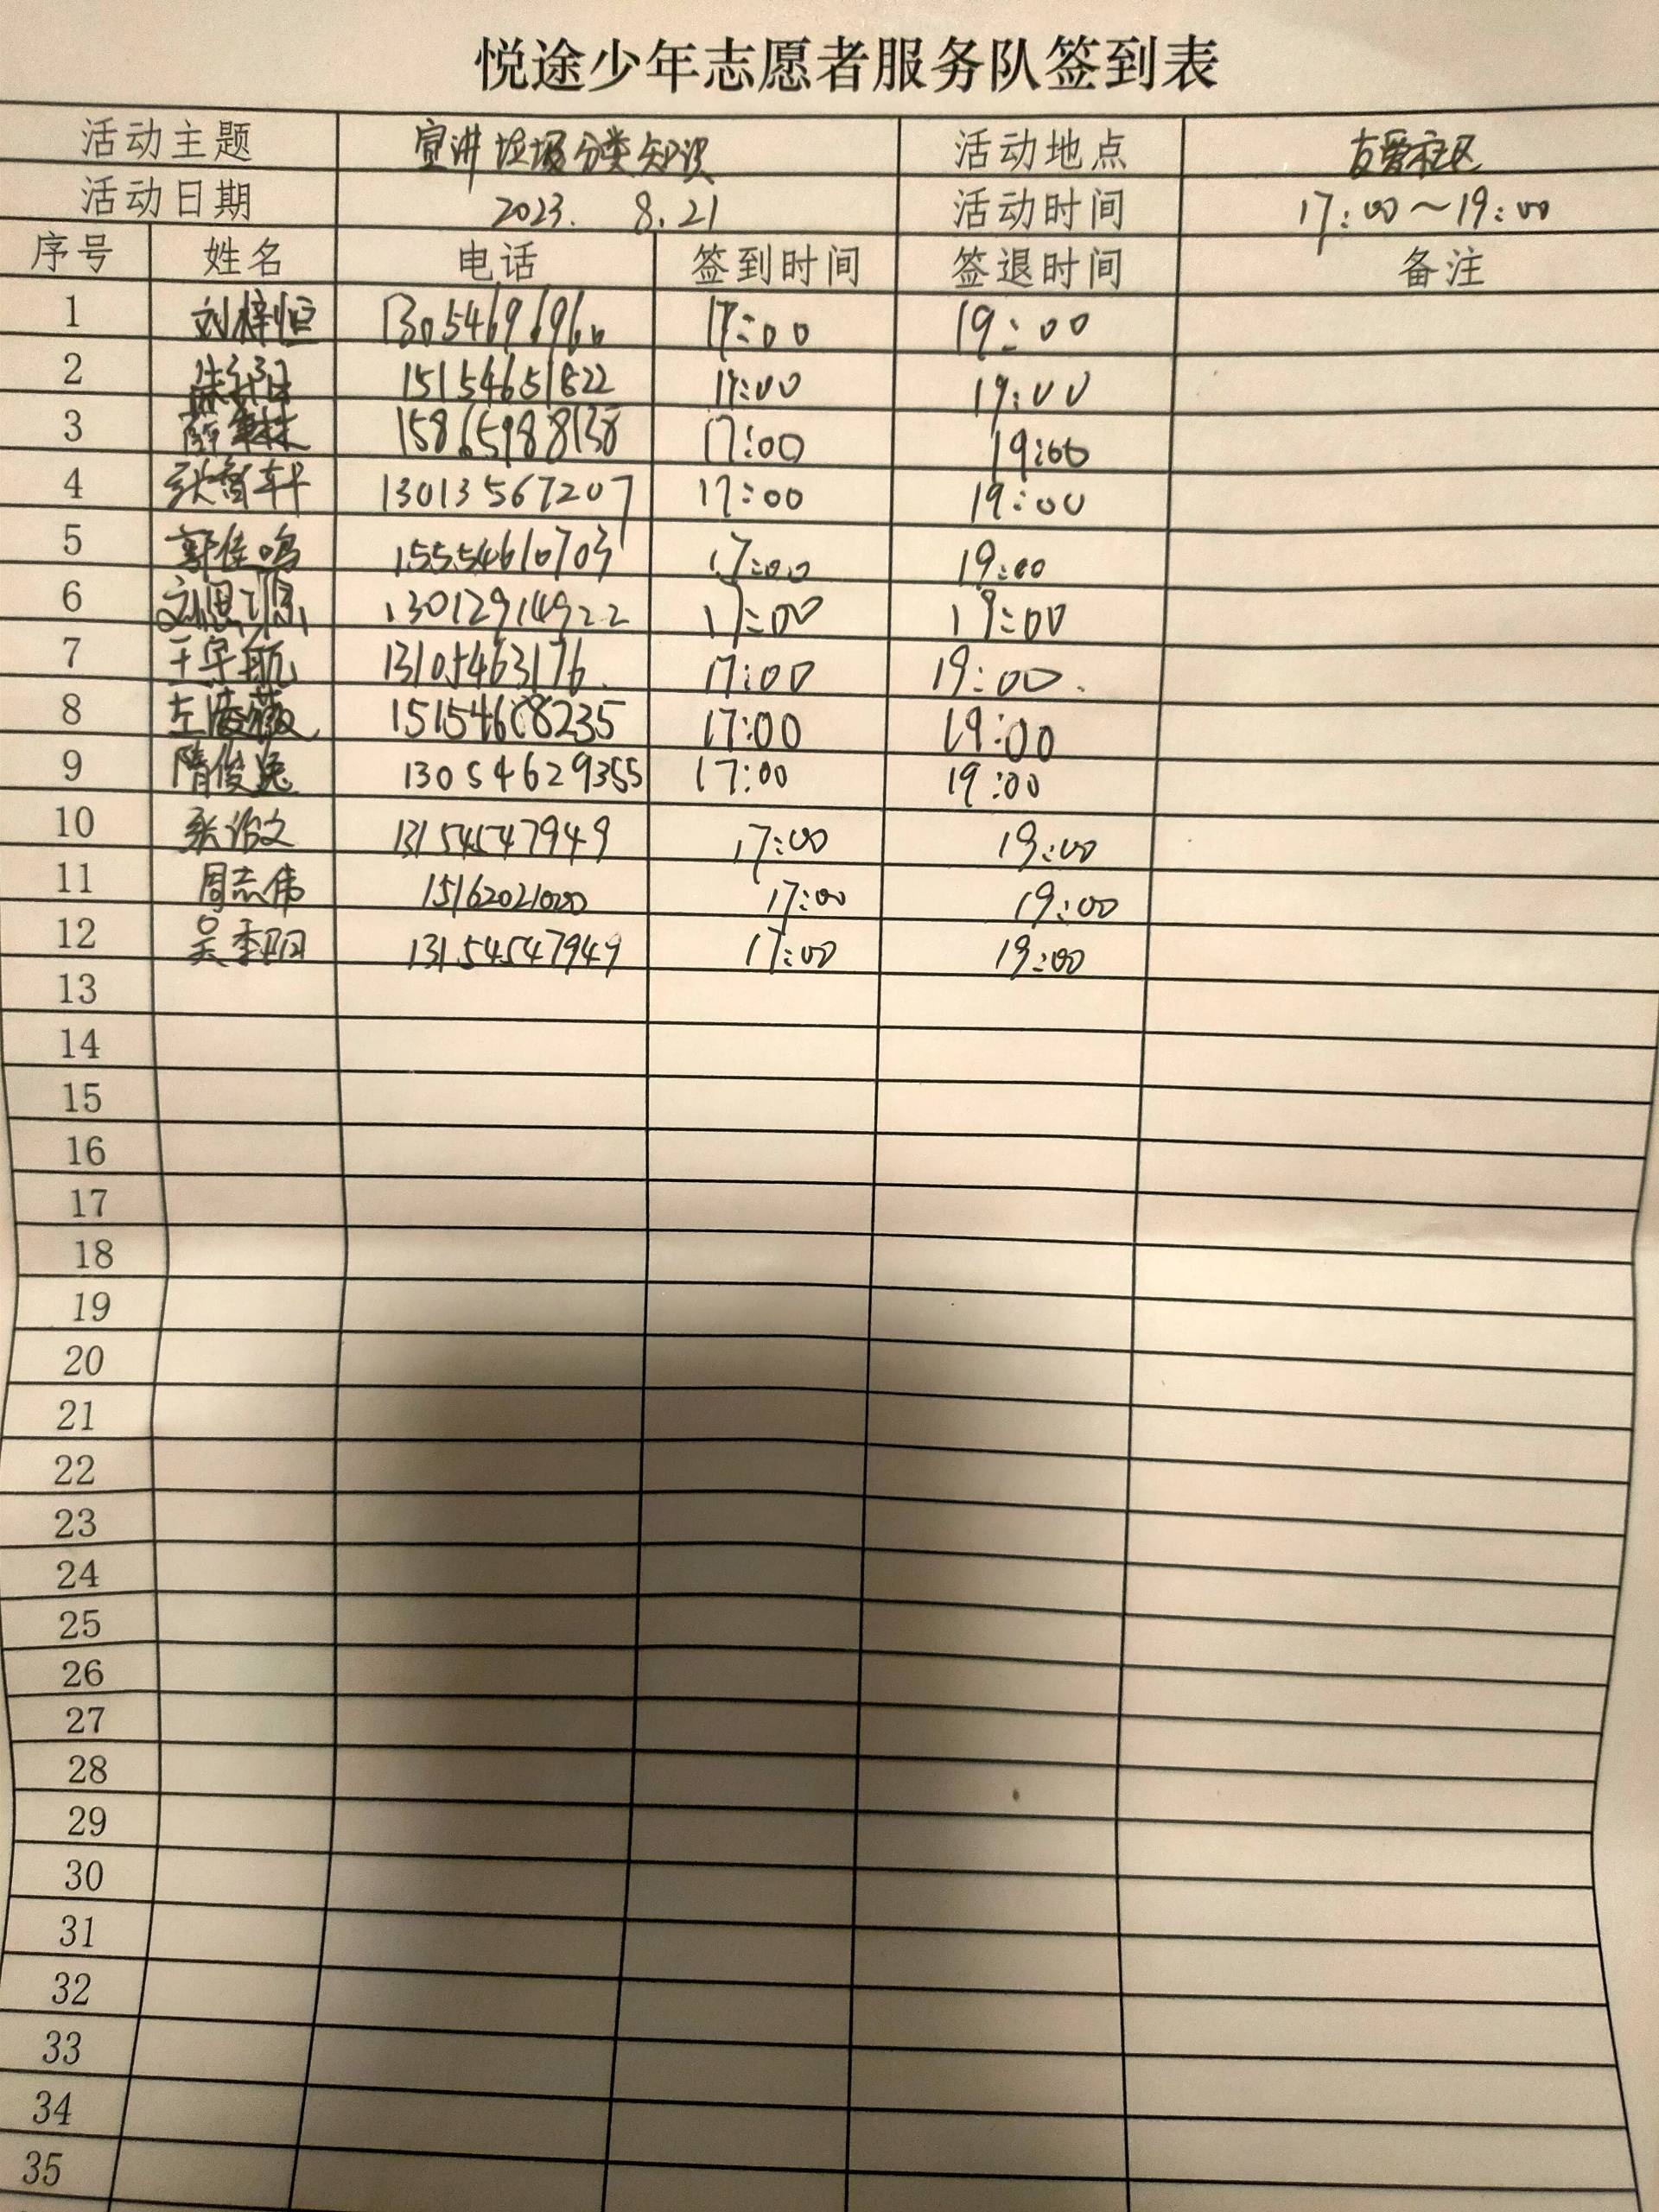 悦途少年志愿者服务队签到表
活动主题 宣讲垃圾分类知识 活动地点 友爱社区
活动日期 2023. 8.21 活动时间 17:00~19:00
序号 姓名 电话 签到时间 签退时间 备注
1 刘梓恒 13054696960 17:00 19:00
2 15154651822 17:00 19:00
3 15865988138 17:00 19:00
4 张智轩 13013567207 17:00 19:00
5 郭佳鸣 15554610703 17:00 19:00
6 13012914922 17:00 19:00
7 王宇航 13105463176 17:00 19:00
8 15154608235 17:00 19:00
9 隋俊逸 13054629355 17:00 19:00
10 张诒文 13154547949 17:00 19:00
11 周志伟 15162021020 17:00 19:00
12 吴季阳 13154547949 17:00 19:00
13
14
15
16
17
18
19
20
21
22
23
24
25
26
27
28
29
30
31
32
33
34
35